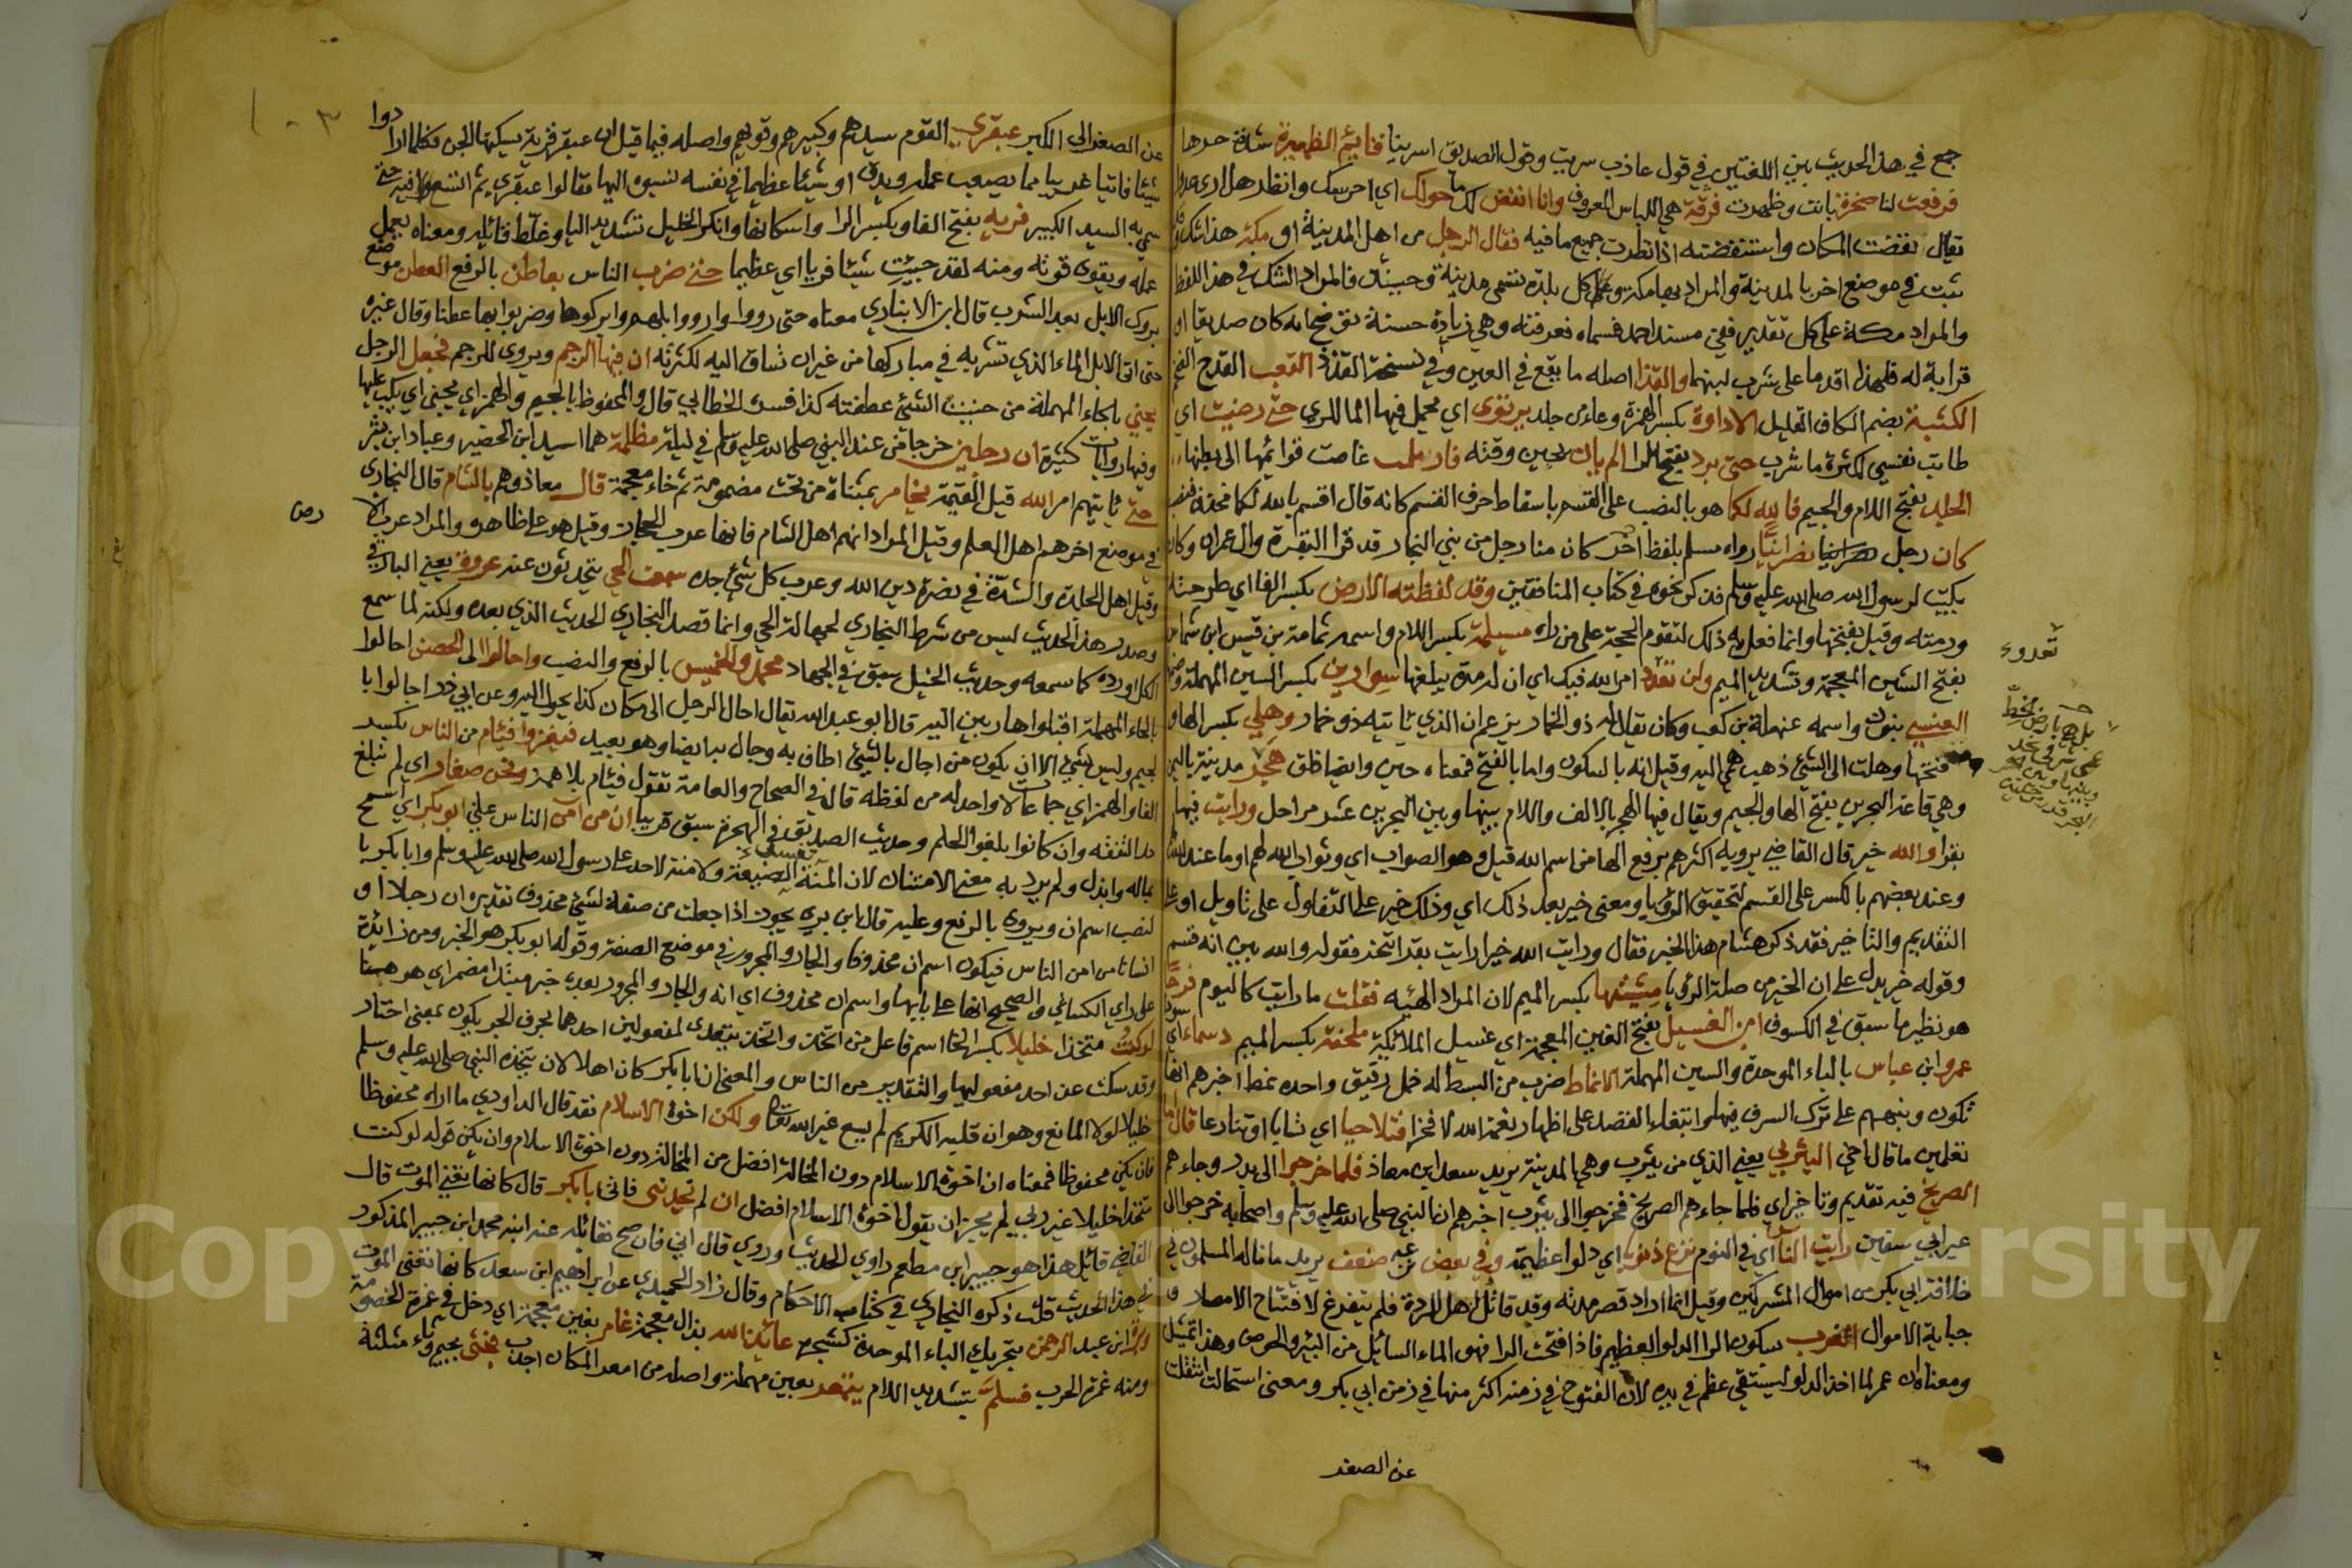 جمع في هذا الحديث بين اللغتين في قول عاذب سريت وقول الصديق اسرينا قايم الظهيرة شدة حرها
فرفعت لنا صخرة بانت وظهرت فروة هي اللباس المعروف وانا انفض لك ما حولك اي احرسك وانظر هل ارى عدوا
يقال نفضت المكان واستنفضته اذا نظرت جميع ما فيه فقال الرجل من اهل المدينة او مكة هذا الشك
ثبت في موضع اخر بالمدينة والمراد بها مكة وكل بلدة تسمى مدينة وحينئذ فالمراد الشك في هذا اللفظ
والمراد مكة على كل تقدير ففي مسند احمد فسماه فعرفته وهي زيادة حسنة توضح انه كان صديقا او
قرابة له فلهذا اقدما على شرب لبنهما والقذا اصله ما يقع في العين وفي نسخة القذر القعب القدح
الكثبة بضم الكاف القليل الاداوة بكسر الهمزة وعاء من جلد يرتوى اي يحمل فيها الما للري حتى رضيت اي
طابت نفسي لكثرة ما شرب حتى برد بفتح الرا الم يان يحين وقته فارتطمت غاصت قوائمها الى بطنها
الجلد بفتح اللام والجيم فالله لكما هو بالنصب على القسم باسقاط حرف القسم كانه قال اقسم بالله لكما فحذف فنصب
كان رجل نصرانيا رواه مسلم بلفظ اخر كان منا رجل من بني النجار قد قرا البقرة وال عمران وكان
يكتب لرسول الله صلى الله عليه وسلم فذكر نحوه في كتاب المنافقين وقد لفظته الارض بكسر الفا اي طرحته
ورمته وقيل بفتحها وانما فعل به ذلك لتقوم الحجة على من راه مسيلمة بكسر اللام واسمه ثمامة بن قيس ابن شماس
بفتح الشين المعجمة وتشديد الميم ولن تعدو امر الله فيك اي ان له مدة يبلغها سوارين بكسر السين المهملة
العنسي بنون واسمه عبهلة بن كعب وكان يقال له ذو الخمار يزعم ان الذي ياتيه ذو خمار وهلي بكسر الها و
فتحها وهلت الى الشئ ذهب وهمي اليه وقيل انه بالسكون واما بالفتح فمعناه حين وايضا قلق هجر مدينة باليمن
وهي قاعدة البحرين بفتح الها والجيم ويقال فيها الهجر بالالف واللام بينها وبين البحرين عشر مراحل ورايت فيها
بقرا والله خير قال القاضي يرويه اكثرهم برفع الها من اسم الله قيل وهو الصواب اي وثواب الله لهم او ما عند الله
وعند بعضهم بالكسر على القسم لتحقيق الرويا ومعنى خير بعد ذلك اي وذلك خير على التفاول على تاويل او على
التقديم والتاخير فقد ذكر هشام هذا الخبر فقال ورايت الله خيرا رايت بقرا تنحر فقوله والله يبين انه قسم
وقوله خير يدل على ان الخير من صلة الرويا مشيتها بكسر الميم لان المراد الهيئه فقلت ما رايت كاليوم فرحا
هو نظير ما سبق في الكسوف ابن الغسيل بفتح الغين المعجمة اي غسيل الملائكة ملحفة بكسر الميم دسماء اي
عمرو ابن عباس بالباء الموحدة والسين المهملة الانماط ضرب من البسط له خمل رقيق واحده نمط اخبرهم انها
تكون ونبههم على ترك السرف فيها وابتغاء القصد على اظهار نعمة الله لا فخرا فتلاحيا اي تشاتما وتنازعا قال اما
تعلمين ما قال اخي اليثربي يعني الذي من يثرب وهي المدينة يريد سعد ابن معاذ فلما خرجوا الى بدر وجاءهم
الصريخ فيه تقديم وتاخير اي فلما جاءهم الصريخ فخرجوا الى يثرب اخبرهم ان النبي صلى الله عليه وسلم واصحابه خرجوا الى
عير ابي سفين رايت الناس اي في النوم نزع ذنوبا اي دلوا عظيمة وفي بعض نزعه ضعف يريد ما ناله المسلمون في
خلافة ابي بكر من اموال المشركين وقيل انما اراد قصر مدته وقد قاتل اهل الردة فلم يتفرغ لافتتاح الامصار و
جباية الاموال الغرب بسكون الرا الدلو العظيم فاذا فتحت الرا فهو الماء السائل من البئر والحوض وهذا تمثيل
ومعناه ان عمر لما اخذ الدلو ليستقي عظم في يده لان الفتوح في زمنه اكثر منها في زمن ابي بكر ومعنى استحالت انقلبت
عن الصغر
تعدوء
عن الصغر الى الكبر عبقري القوم سيدهم وكبيرهم وقويهم واصله فيما قيل ان عبقر قرية يسكنها الجن فكلما رادوا
شيئا فائقا غريبا مما يصعب عمله ويدق او شيئا عظيما في نفسه نسبوه اليها فقالوا عبقري ثم اتسع فيه حتى
سمي به السيد الكبير فريه بفتح الفا وبكسر الرا واسكانها وانكر الخليل تشديد اليا وغلط قائله ومعناه يعمل
عمله ويقوى قوته ومنه لقد جيت شيئا فريا اي عظيما حتى ضرب الناس بعطن بالرفع العطن موضع
بروك الابل بعد الشرب قال ابن الانباري معناه حتى رووا وارووا ابلهم وابركوها وضربوا بها عطنا وقال غيره
حتى الابل الماء الذي تشربه في مباركها من غير ان تساق اليه لكثرته ان فيها الرجم ويروى للرجم فجعل الرجل
يحني بالحاء المهملة من حنيت الشئ عطفته كذا فسره الخطابي قال والمحفوظ بالجيم والهمز اي يجني اي يكب عليها
وفيها روايات كثيرة ان رجلين خرجا من عند النبي صلى الله عليه وسلم في ليلة مظلمة هما اسيد ابن الحضير وعباد ابن بشر
حتى ياتيهم امر الله قيل القيمة يخامر بمثناة من تحت مضمومة ثم خاء معجمة قال معاذ وهم بالشام قال البخاري
في موضع اخر هم اهل العلم وقيل المراد انهم اهل الشام فانها غرب الحجاز وقيل هو على ظاهره والمراد غرب الارض
وقيل اهل الجلد والشدة في نصرة دين الله وغرب كل شئ حده سمعت الحي يتحدثون عنه عروة يعني البارقي
وصدر هذا الحديث ليس من شرط البخاري لجهالة الحي وانما قصد البخاري الحديث الذي بعده ولكنه لما سمع
الكل اورده كما سمعه وحديث الخيل سبق في الجهاد محمد والخميس بالرفع والنصب واحالوا الى الحصن احالوا
بالحاء المهملة اقبلوا هاربين اليه قال ابو عبد الله يقال احال الرجل الى مكان كذا تحول اليه وعن ابي ذر اجالوا با
لجيم وليس بشئ الا ان يكون من اجال بالشئ اطاف به وجال به ايضا وهو بعيد فيغزوا فئام من الناس بكسر
الفا والهمز اي جماعات لا واحد له من لفظه قاله في الصحاح والعامة تقول فئام بلا همز ونحن صغار اي لم نبلغ
حد التفقه وان كانوا بلغوا الحلم وحديث الصديق في الهجرة سبق قريبا ان من امن الناس علي ابو بكر اي اسمح
بماله وابذل ولم يرد به معنى الامتنان لان المنة تفسد الصنيعة ولا منة لاحد على رسول الله صلى الله عليه وسلم وابا بكر با
لنصب اسم ان ويروى بالرفع وعليه قال ابن بري يجوز اذا جعلت من صفة لشئ محذوف تقديره ان رجلا او
انسانا من امن الناس فيكون اسم ان محذوفا والجار والمجرور في موضع الصفة وقوله ابو بكر هو الخبر ومن زائدة
على راي الكسائي والصحيح انها على بابها واسم ان محذوف اي انه والجار والمجرور بعده خبر مبتدا مضمر اي هو
لو كنت متخذا خليلا بكسر الخا اسم فاعل من اتخذ واتخذ يتعدى لمفعولين احدهما بحرف الجر يكون بمعنى اختار
وقد سكت عن احد مفعوليها والتقدير من الناس والمعنى ان ابا بكر كان اهلا لان يتخذه النبي صلى الله عليه وسلم
خليلا لولا المانع وهو ان قلبه الكريم لم يسع غير الله تعالى ولكن اخوة الاسلام نقد قال الداودي ما اراه محفوظا
فان يكن محفوظا فمعناه ان اخوة الاسلام دون المخالة افضل من المخالة دون اخوة الاسلام وان يكن قوله لو كنت
متخذا خليلا غير ربي لم يجز ان يقول اخوة الاسلام افضل ان لم تجدني فاتي ابا بكر قال كانها تعني الموت قال
القاضي قائل هذا هو جبير ابن مطعم راوي الحديث وروي قال ابي فان صح فقائله عنه ابنه محمد ابن جبير المذكور
في هذا الحديث قلت ذكره البخاري في كتاب الاحكام وقال زاد الحميدي عن ابراهيم ابن سعد كانها تعني الموت
وبرة ابن عبد الرحمن بتحريك الباء الموحدة كشجرة عائذ الله بذال معجمة غامر بغين معجمة اي دخل في غمرة الخصومة
ومنه غمرة الحرب فسلم بتشديد اللام يتمعر بعين مهملة واصله من امعر المكان اجدب فجثى بجيم وثاء مثلثة